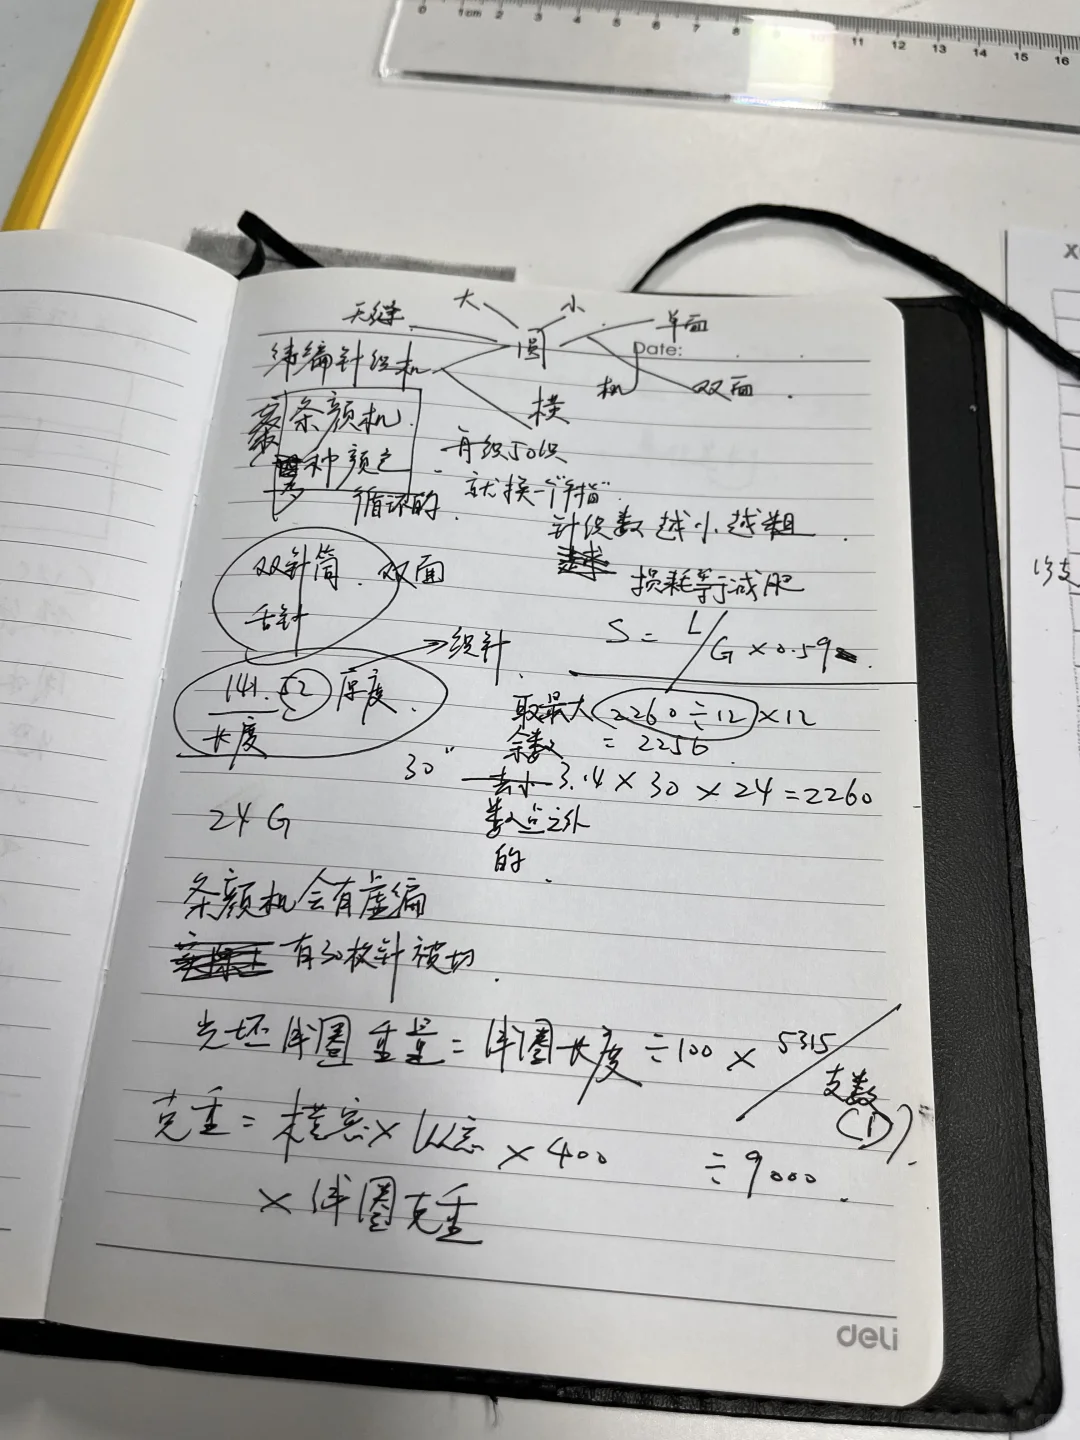 0 1cm 2 3 4 5 6 7 8 11 12 13 14 15 16
大 小
无缝 单面
圆 Date:
纬编针织机 机 双面
横
条颜机
再织50织
种颜色
就换一个
循环的
针织数越小越粗
双针筒 双面
损耗等于减肥
舌针
S = L/G×0.59
织针
141.52 厚度
取最大 2260÷12×12
长度
余数 = 2256
30"
3.14×30×24=2260
24G
数点之外
的
条颜机会有虚编
有30枚针被切
光坯线圈重量=线圈长度÷100×5315/支数(D)
÷9000
克重=横密×纵密×400
×线圈克重
deli